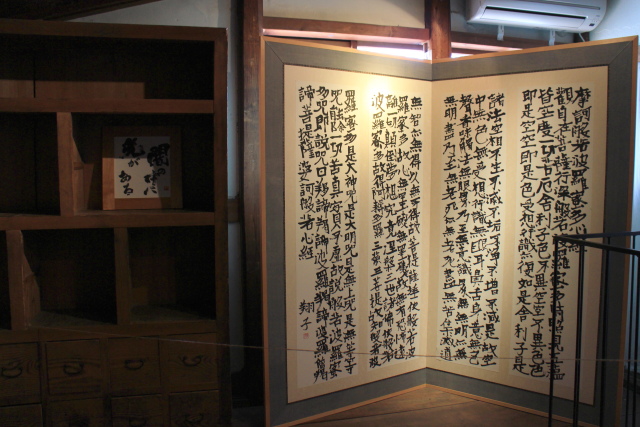 摩訶般若波羅蜜多心経
観自在菩薩行深般若波羅蜜多時照見五蘊
皆空度一切苦厄舎利子色不異空空不異色色
即是空空即是色受想行識亦復如是舎利子是
諸法空相不生不滅不垢不浄不増不減是故空
中無色無受想行識無眼耳鼻舌身意無色
声香味触法無眼界乃至無意識界無無明亦無
無明尽乃至無老死亦無老死尽無苦集滅道
無智亦無得以無所得故菩提薩埵依般若波
羅蜜多故心無罣礙無罣礙故無有恐怖遠
離一切顛倒夢想究竟涅槃三世諸仏依般若
波羅蜜多故得阿耨多羅三藐三菩提故知般若波
羅蜜多是大神呪是大明呪是無上呪是無等等
呪能除一切苦真実不虚故説般若波羅蜜
多呪即説呪曰羯諦羯諦波羅羯諦波羅僧羯
諦菩提薩婆訶般若心経 翔子
闇の中に
光が
ある